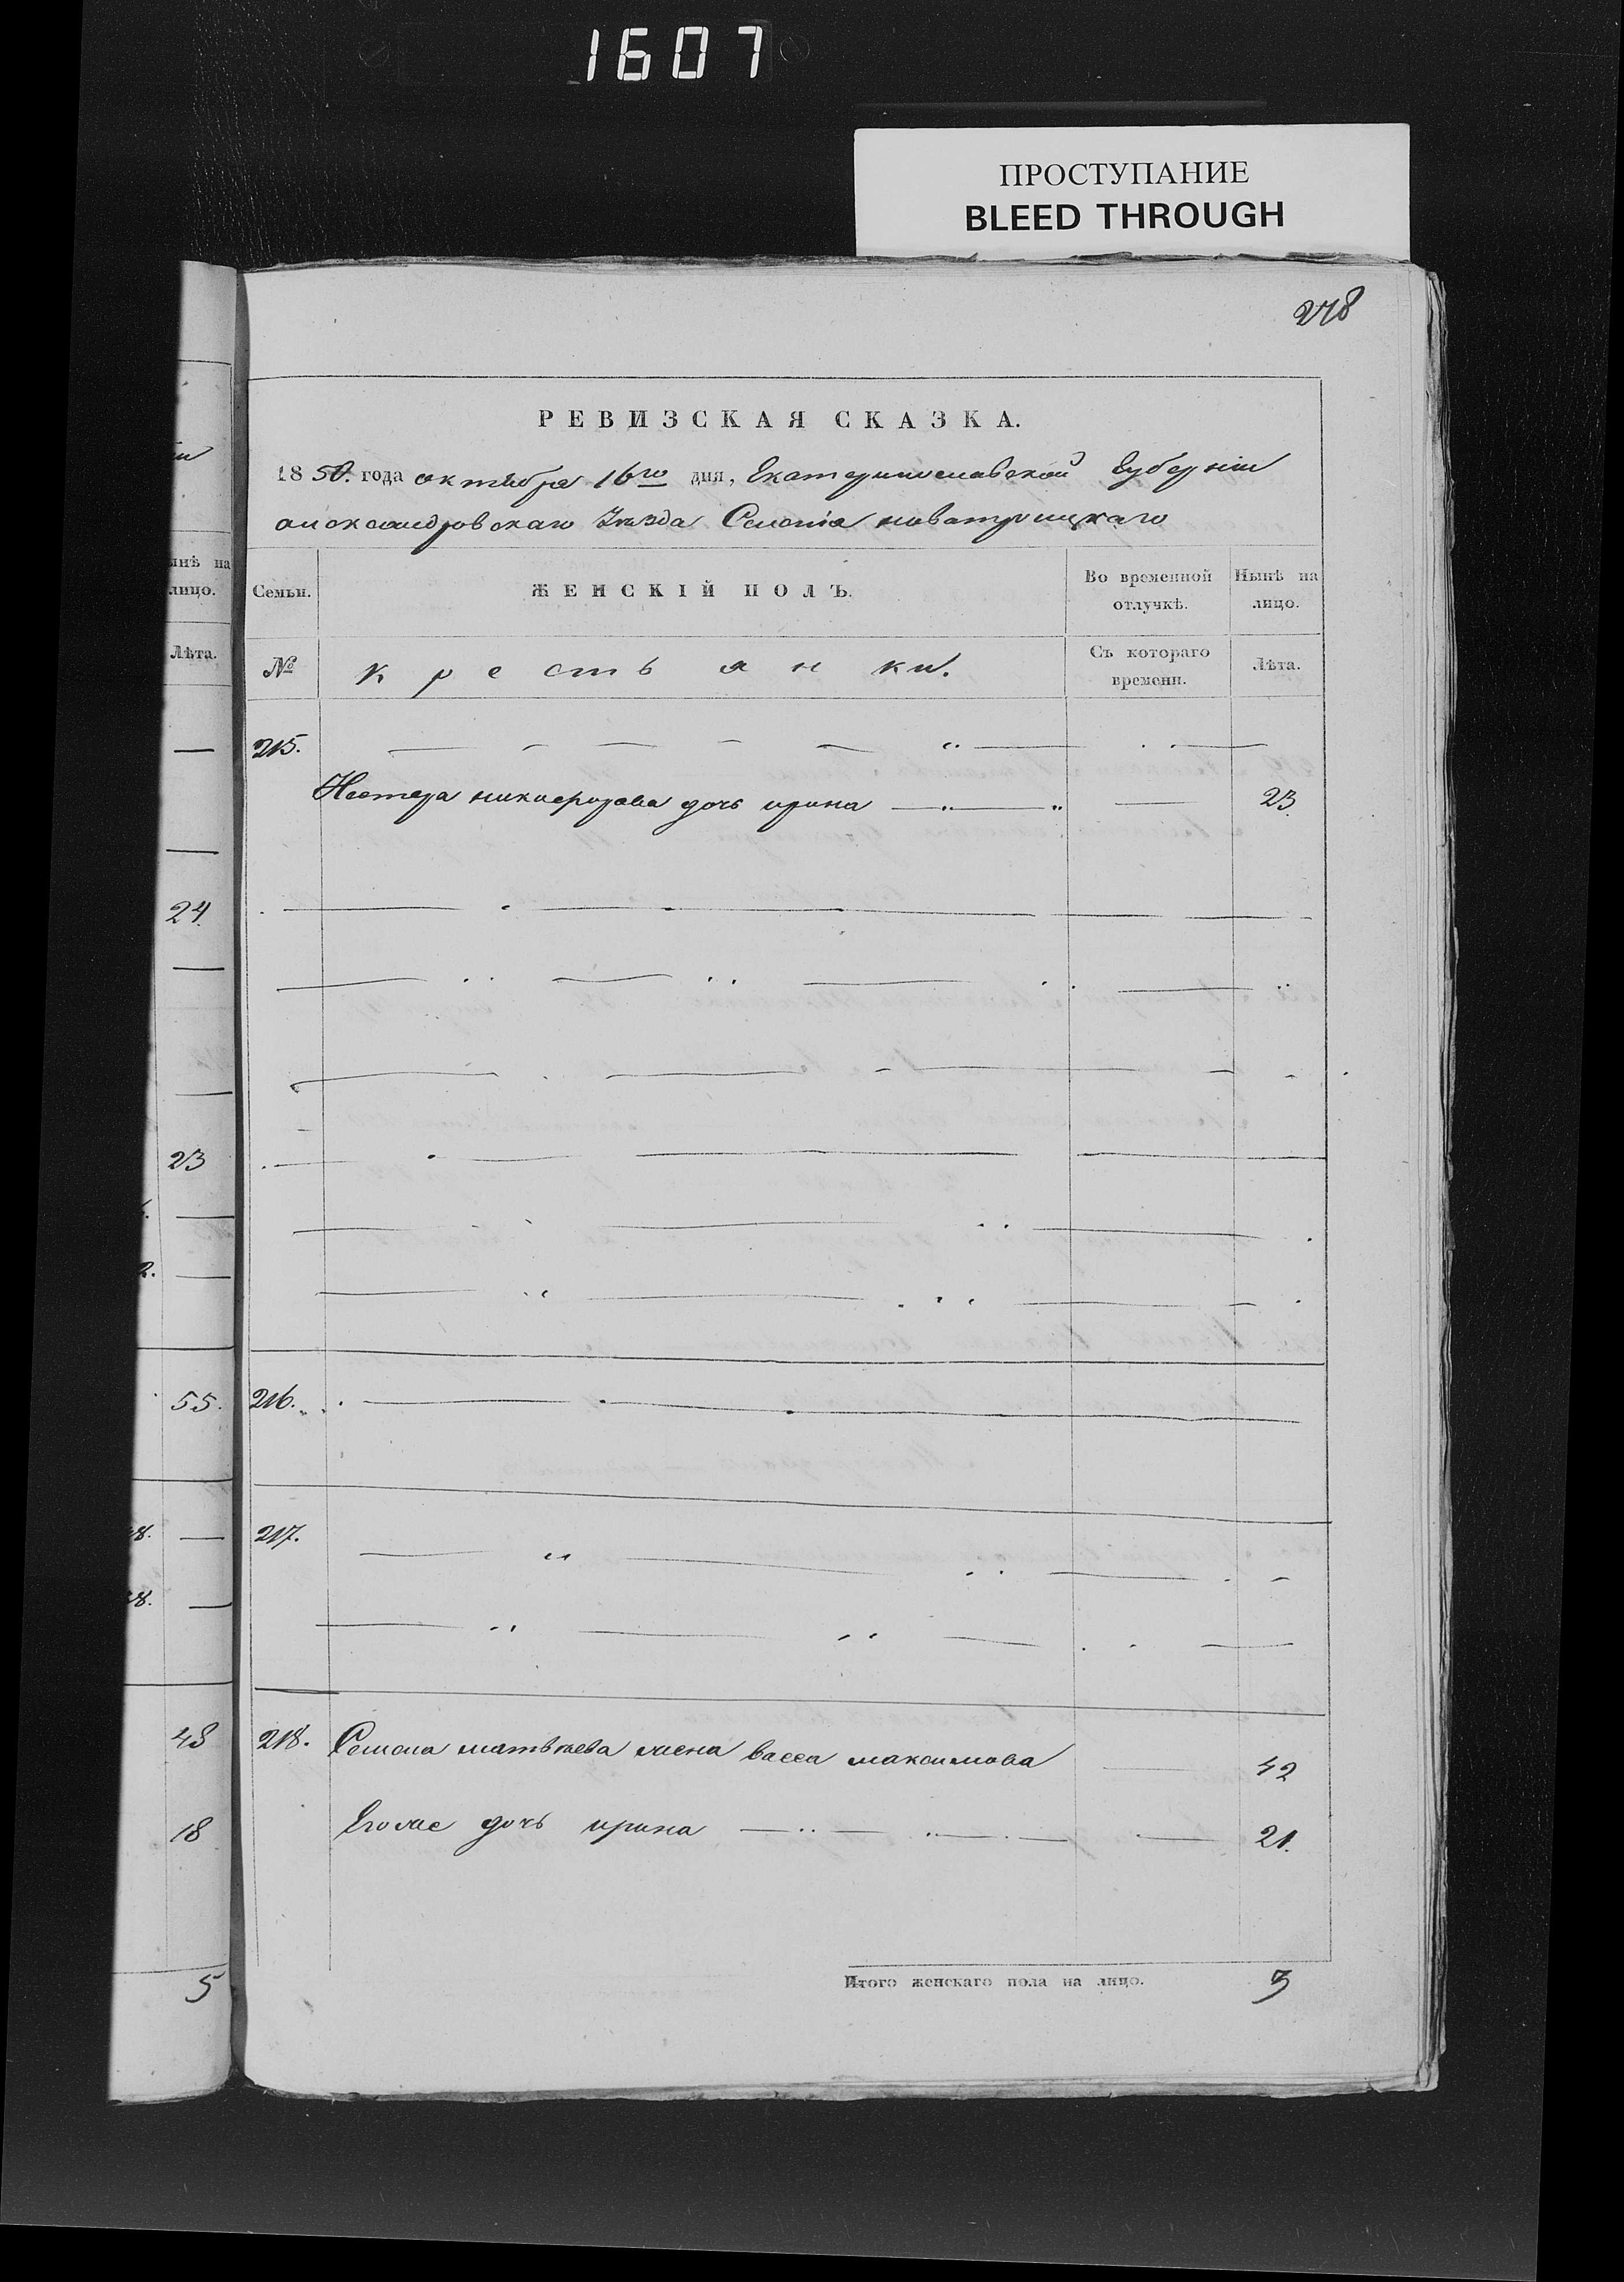 1607
ПРОСТУПАНИЕ
BLEED THROUGH
278
РЕВИЗСКАЯ СКАЗКА.
1850. года октября 16го дня, Екатеринославской Губерніи
александровскаго Уезда Селенія новатроицкаго
ынѣ на
лицо.
Лѣта.
Семьи.
ЖЕНСКІЙ ПОЛЪ.
Во временной отлучкѣ.
Нынѣ на лицо.
№
крестьянки.
Съ котораго времени.
Лѣта.
215.
Нестера никифорова дочь ирина 23.
24.
23
55. 216.
217.
48 218. Семена матвѣева жена васса максимова 42
18 Егоже дочь ирина 21.
Итого женскаго пола на лицо. 3
5